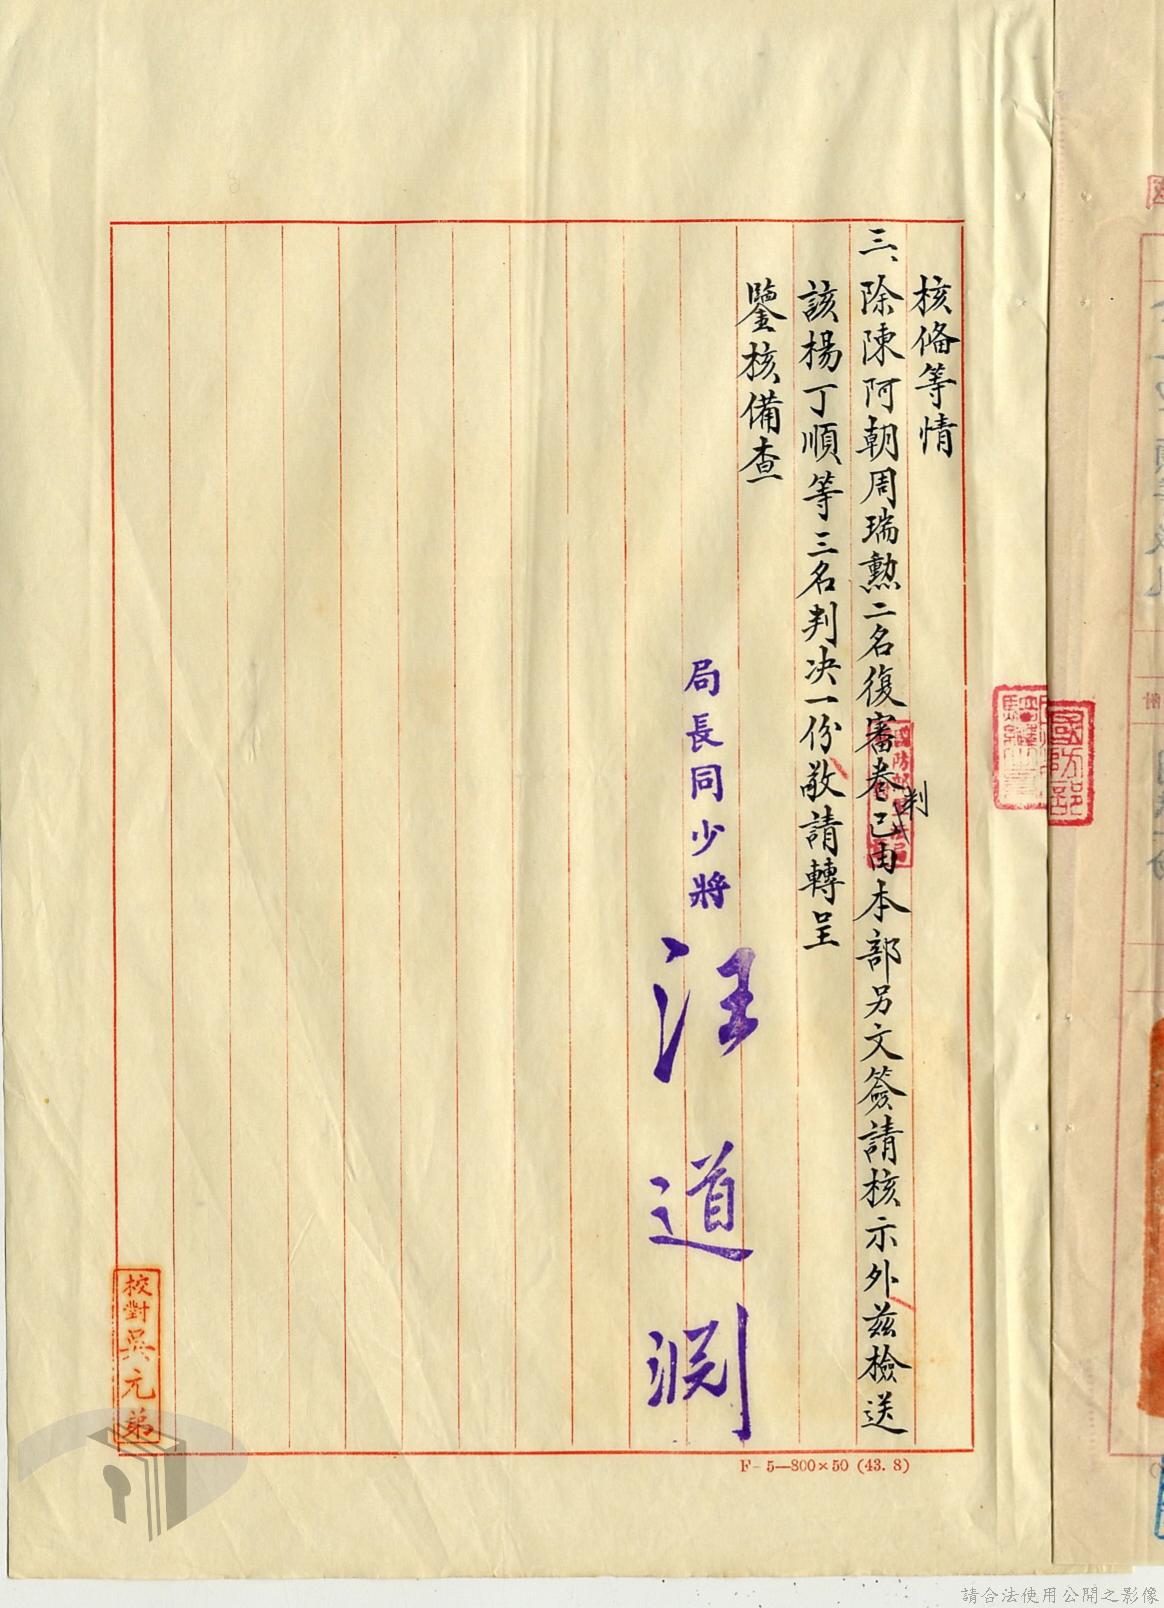 核俻等情
三、除陳阿朝周瑞勲二名復審卷判已由本部另文簽請核示外茲檢送
該楊丁順等三名判决一份敬請轉呈
鑒核備查
局長同少將 汪道淵
校對吳元弟
F-5—800×50 (43. 8)
國防部
請合法使用公開之影像